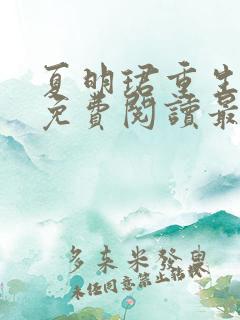 夏明珺重生
免費閱讀最
多來米發臭
未经同意禁止转载